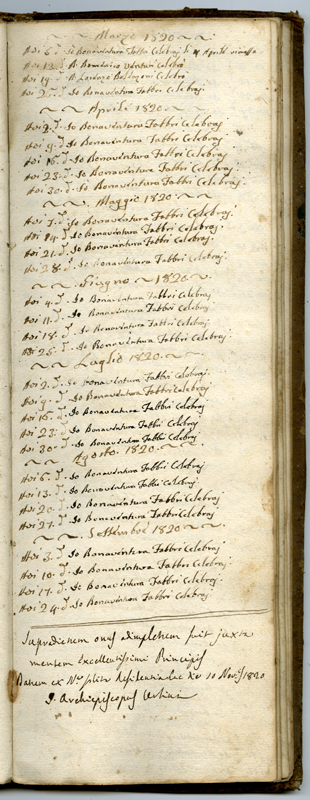 Marzo 1820
Io Bonaventura Fabbri Celebraj
Adi 12. d.º D.
Adi 19. d.º D. Lorenzo
Adi 2 d.º Io Bonaventura Fabbri Celebraj
Aprile 1820
Adi 2. d.º Io Bonaventura Fabbri Celebraj
Adi 9. d.º Io Bonaventura Fabbri Celebraj
Adi 16. d.º Io Bonaventura Fabbri Celebraj
Adi 23. d.º Io Bonaventura Fabbri Celebraj
Adi 30. d.º Io Bonaventura Fabbri Celebraj
Maggio 1820
Adi 7. d.º Io Bonaventura Fabbri Celebraj.
Adi 14. d.º Io Bonaventura Fabbri Celebraj.
Adi 21. d.º Io Bonaventura Fabbri Celebraj.
Adi 28. d.º Io Bonaventura Fabbri Celebraj.
Giugno 1820
Adi 4. d.º Io Bonaventura Fabbri Celebraj
Adi 11. d.º Io Bonaventura Fabbri Celebraj
Adi 18. d.º Io Bonaventura Fabbri Celebraj
Adi 25. d.º Io Bonaventura Fabbri Celebraj.
Luglio 1820
Adi 2. d.º Io Bonaventura Fabbri Celebraj.
Adi 9. d.º Io Bonaventura Fabbri Celebraj
Adi 16. d.º Io Bonaventura Fabbri Celebraj
Adi 23. d.º Io Bonaventura Fabbri Celebraj
Adi 30. d.º Io Bonaventura Fabbri Celebraj
Agosto 1820
Adi 6. d.º Io Bonaventura Fabbri Celebraj
Adi 13. d.º Io Bonaventura Fabbri Celebraj.
Adi 20. d.º Io Bonaventura Fabbri Celebraj
Adi 27. d.º Io Bonaventura Fabbri Celebraj
Settembre 1820
Adi 3. d.º Io Bonaventura Fabbri Celebraj.
Adi 10. d.º Io Bonaventura Fabbri Celebraj.
Adi 17. d.º Io Bonaventura Fabbri Celebraj.
Adi 24. d.º Io Bonaventura Fabbri Celebraj.
Supradictum onus adimpletum fuit juxta
mentem Excellentissimi Principis
Datum ex 10 1820
Archiepiscopus Urbini